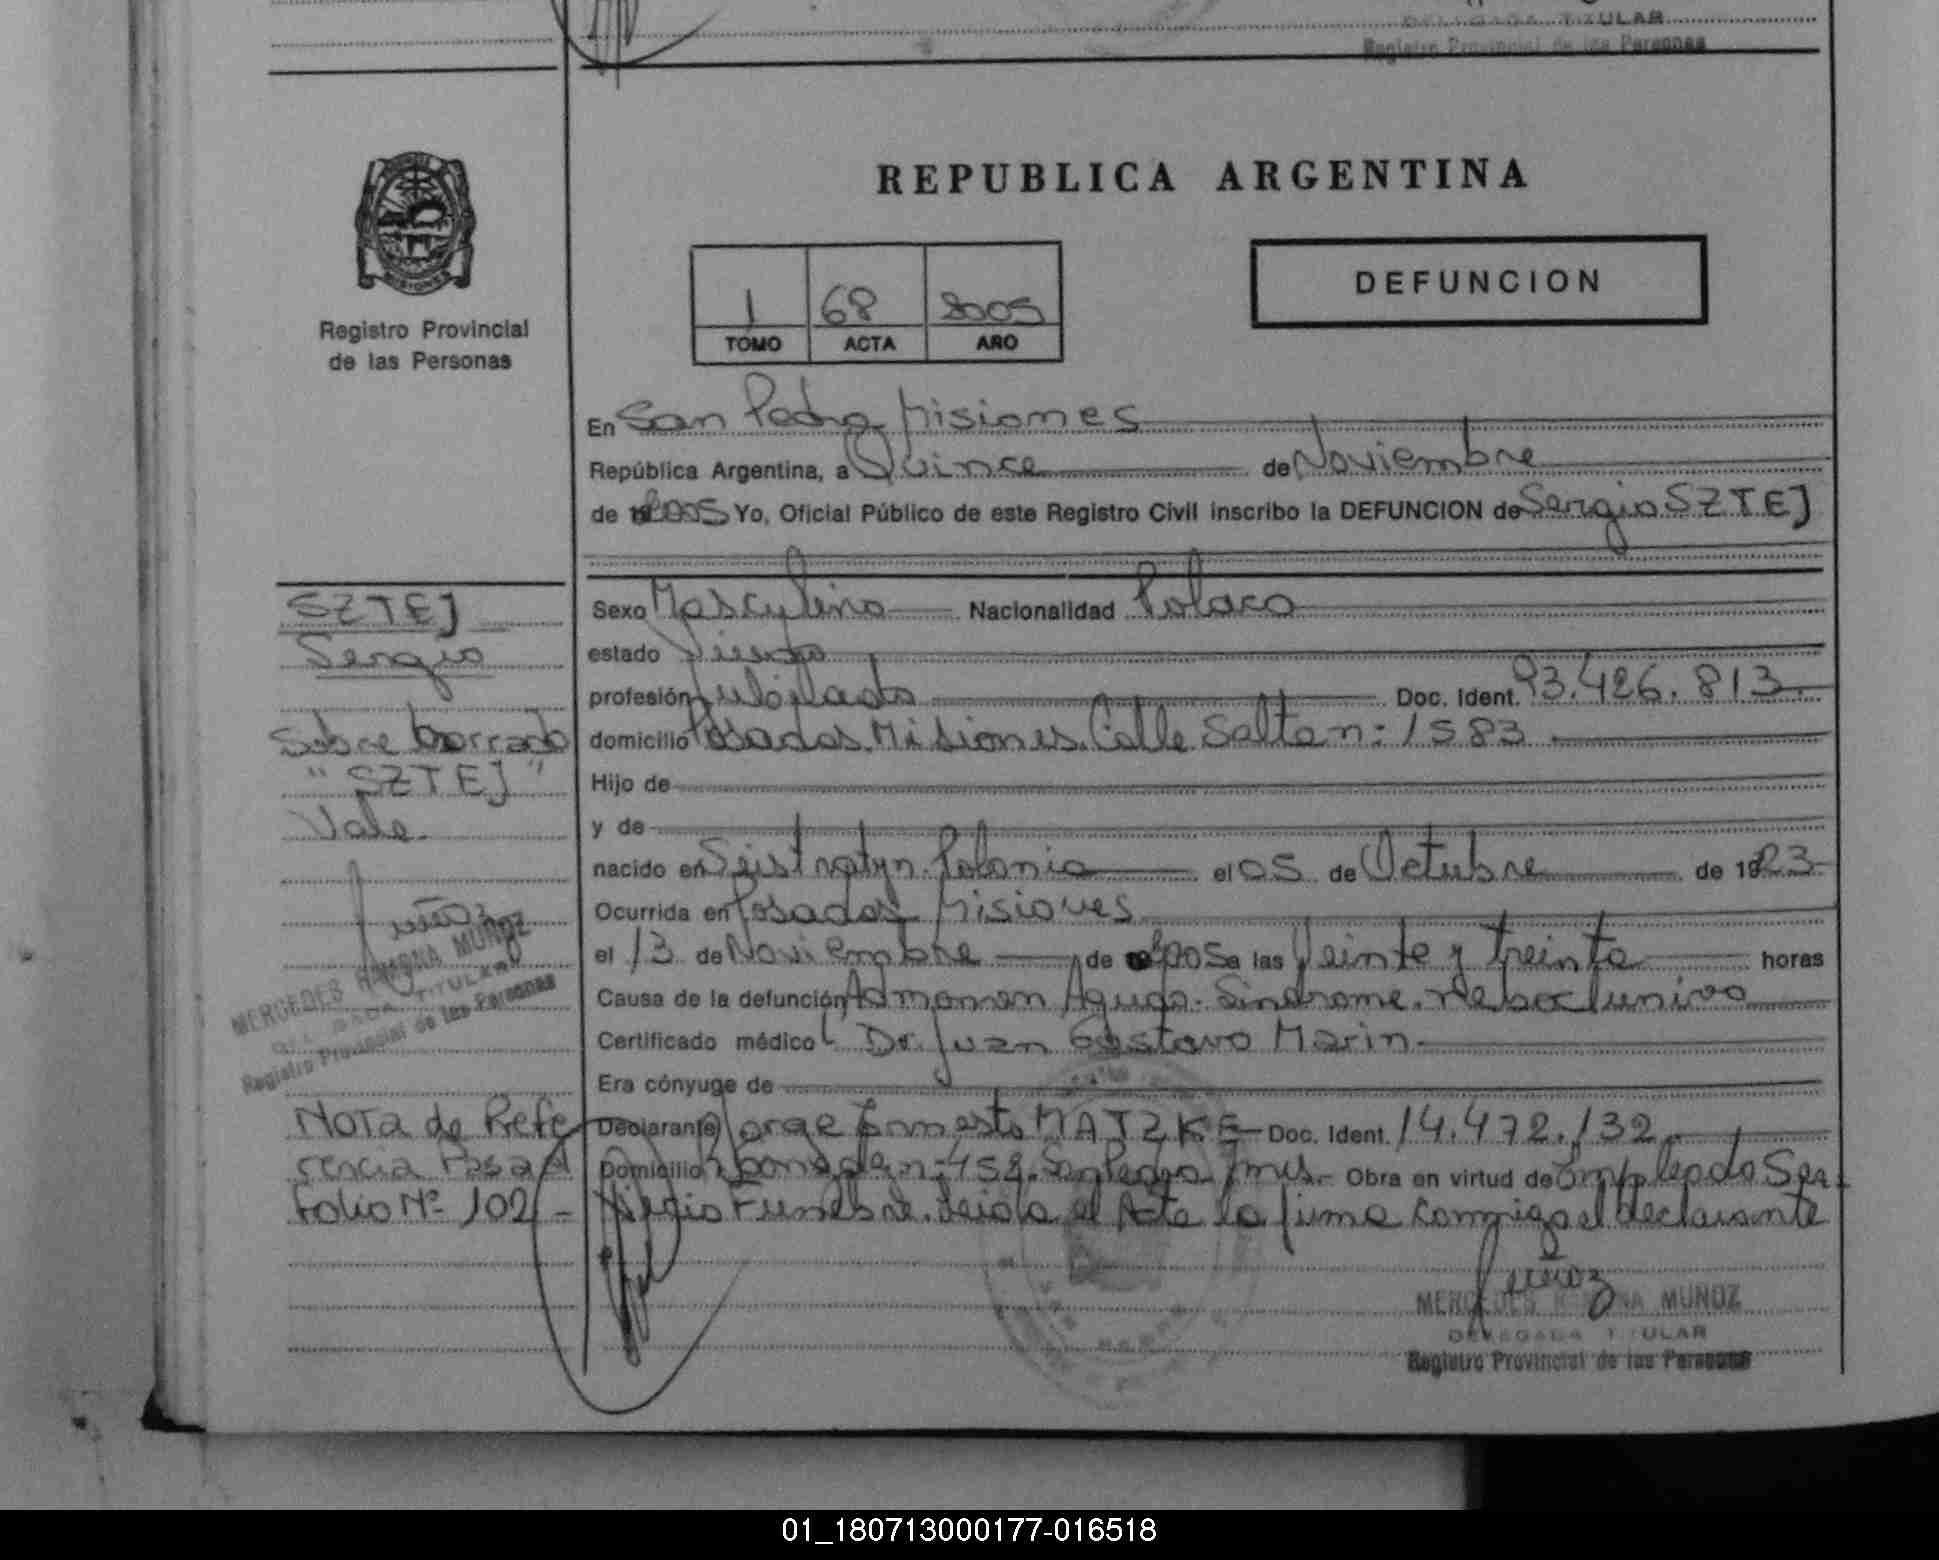 TITULAR
Registro Provincial de las Personas
REPUBLICA ARGENTINA
DEFUNCION
1 68 2005
TOMO ACTA AÑO
Registro Provincial
de las Personas
En San Pedro Misiones
República Argentina, a Quince de Noviembre
de 2005 Yo, Oficial Público de este Registro Civil inscribo la DEFUNCION de Sergio SZTEJ
SZTEJ
Sergio
Sobre borrado
"SZTEJ"
Vale
Muñoz
MERCEDES RAMONA MUÑOZ
DELEGADA TITULAR
Registro Provincial de las Personas
NOTA de Refe
rencia Pasa al
Folio Nº 102 -
Sexo Masculino Nacionalidad Polaco
estado Viudo
profesión Jubilado Doc. Ident. 93.426.813.
domicilio Posadas. Misiones. Calle Salta n: 1583
Hijo de
y de
nacido en Seistratyn. Polonia el 05 de Octubre de 1923
Ocurrida en Posadas Misiones
el 13 de Noviembre de 2005 a las Veinte y treinta horas
Causa de la defunción Aguda. Sindrome.
Certificado médico Dr. Juan Gustavo Marin.
Era cónyuge de
Declarante Jorge Ernesto MATZKE Doc. Ident. 14.472.132
Domicilio n: 452. San Pedro Mis. Obra en virtud de Empleado Ser
vicio Funebre. Leida el Acta la firma conmigo el declarante
Muñoz
MERCEDES RAMONA MUÑOZ
DELEGADA TITULAR
Registro Provincial de las Personas
01_180713000177-016518